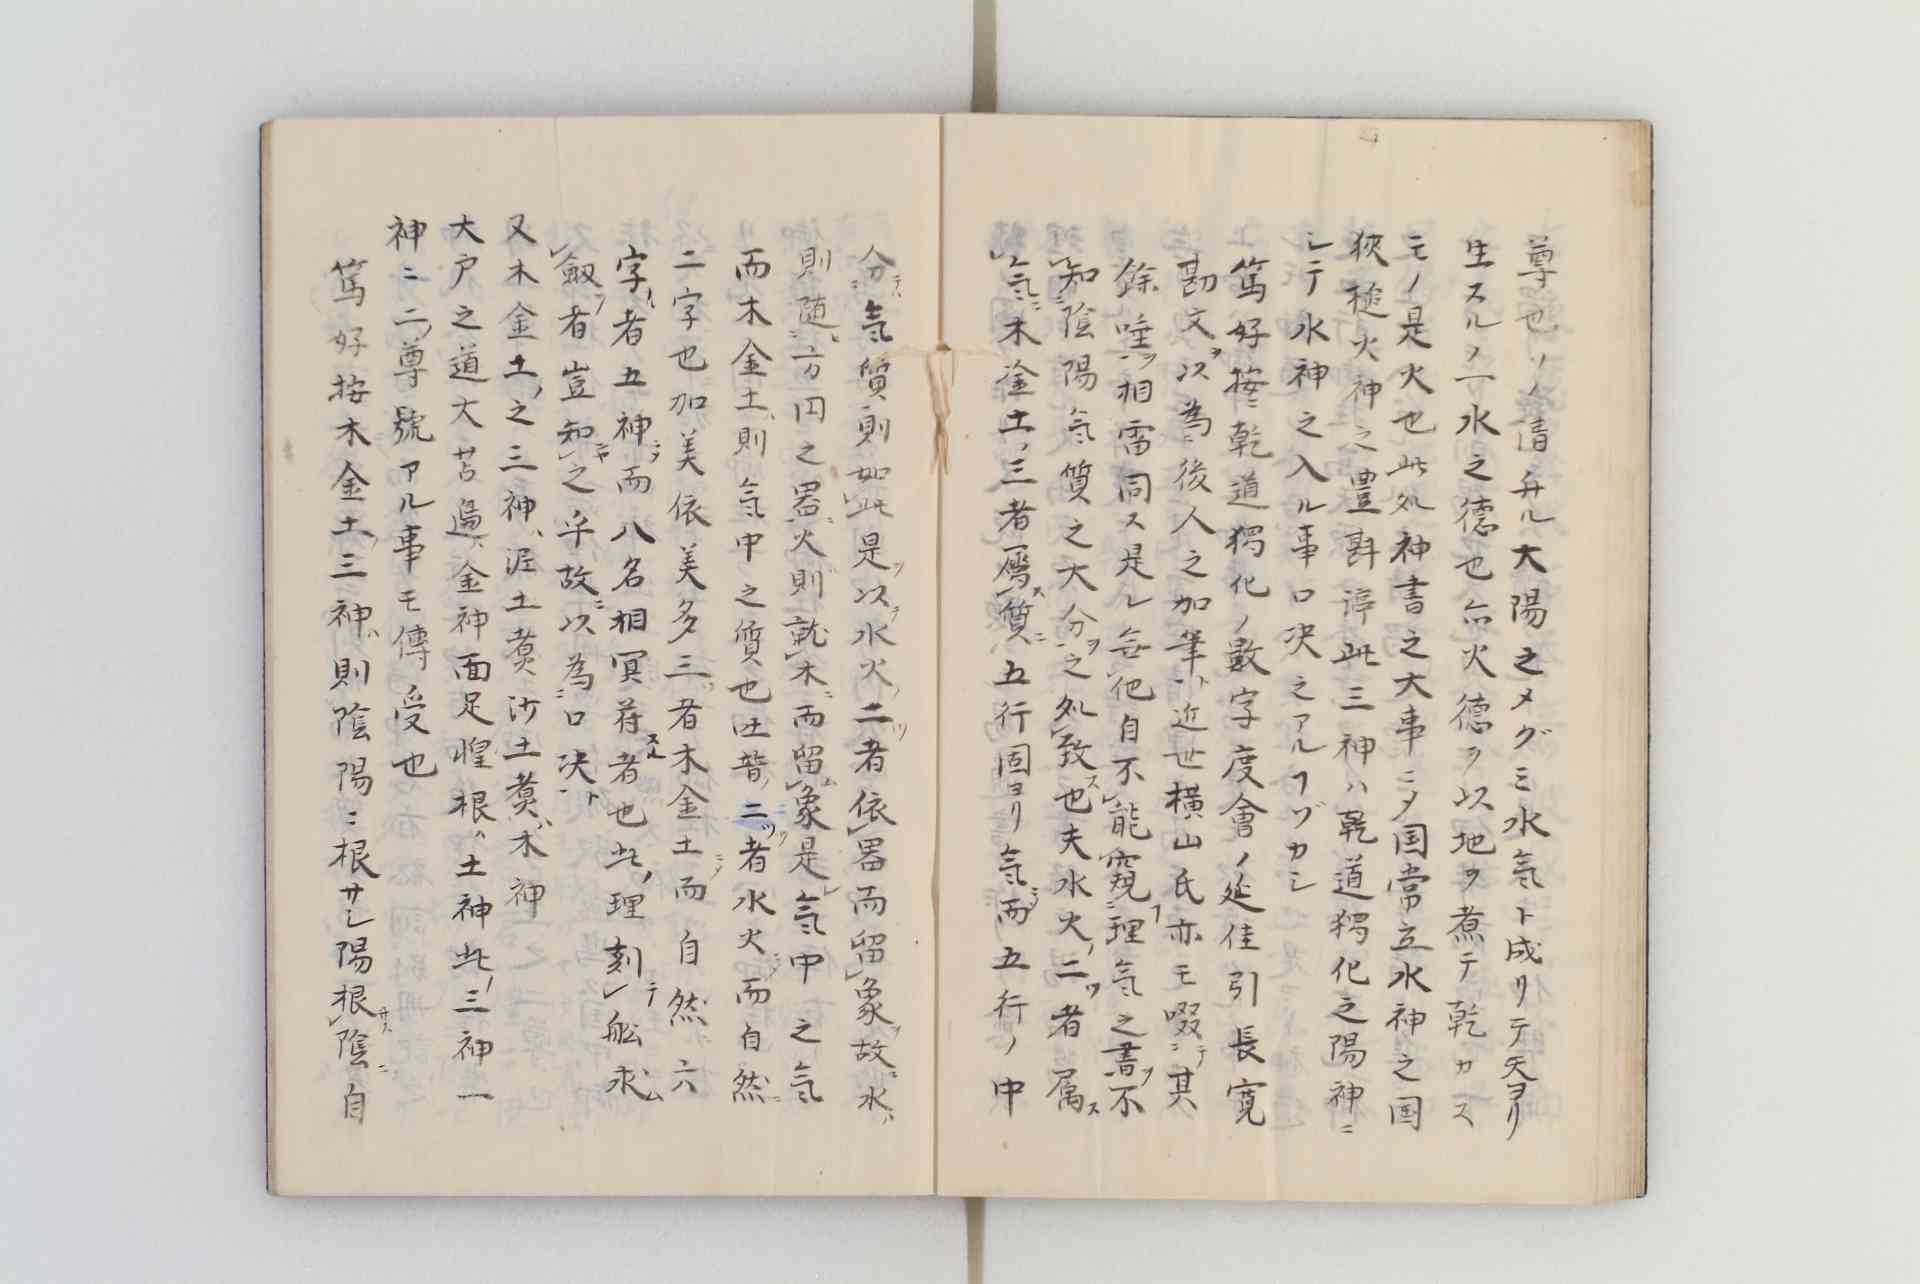 尊也ソノ清舟ル大陽之メグミ水氣ト成リテ天ヨリ
生スルノ一水之德也亦火德ヲ以地ヲ煮テ乾カス
モノ是火也此処神書之大事ニメ国常立水神之国
狹槌火神之豊斟渟此三神ハ乾道獨化之陽神ニ
シテ水神之入ル事口决之アルフヅカシ
篤好按ニ乾道獨化ノ數字度會ノ延佳引長寛
勘文ヲ以為ニ後人之加筆ト近世橫山氏亦モ啜ニ其
餘唾ヲ相雷同ス是レ無他自不能窺理氣之書ヲ不
知陰陽氣質之大分ヲ之処致也夫水火ノ二ツ者属ス
氣ニ木金土ノ三者属質ニ五行固ヨリ氣而五行ノ中
分氣質則如此是以水火ノ二ツ者依器而留象ヲ故ニ水ハ
則随方円之器ニ火則就木ニ而留象是レ氣中之氣
而木金土ハ則氣中之質也吐普ノ二ツ者水火ニノ而自然
二字也加美依美多三ツ者木金土ニノ而自然六
字ハ者五神ニノ而八名相冥符スル者也此ノ理刻テ舩求
劔ヲ者豈知之乎故ニ以為ニ口决ト
又木金土ノ之三神ハ泥土煑沙土煑ハ木神
大戸之道大苫邊ハ金神面足惶根ハ土神此ノ三神一
神ニ二ノ尊號アル事モ傳受也
篤好按木金土ノ三神ハ則陰陽ニ根サシ陽根サス陰ニ自